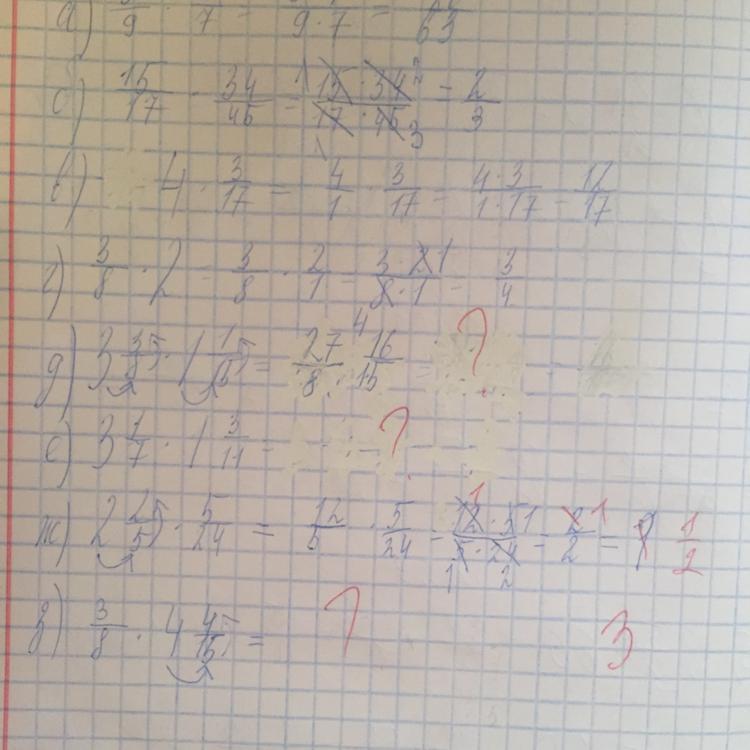 а) 9 · 7 = 9·7 = 63
с) 15/17 · 34/45 = 15·34/17·45 = 2/3
в) 4 · 3/17 = 4/1 · 3/17 = 4·3/1·17 = 12/17
г) 3/8 · 2 = 3/8 · 2/1 = 3·2/8·1 = 3/4
д) 3 3/8 · 1 1/15 = 27/8 · 16/15 = ?
е) 3 1/7 · 1 3/11 = ?
ж) 2 2/5 · 5/24 = 12/5 · 5/24 = 12·5/5·24 = 2 = 1/2
з) 3/8 · 4 4/15 = ? 3